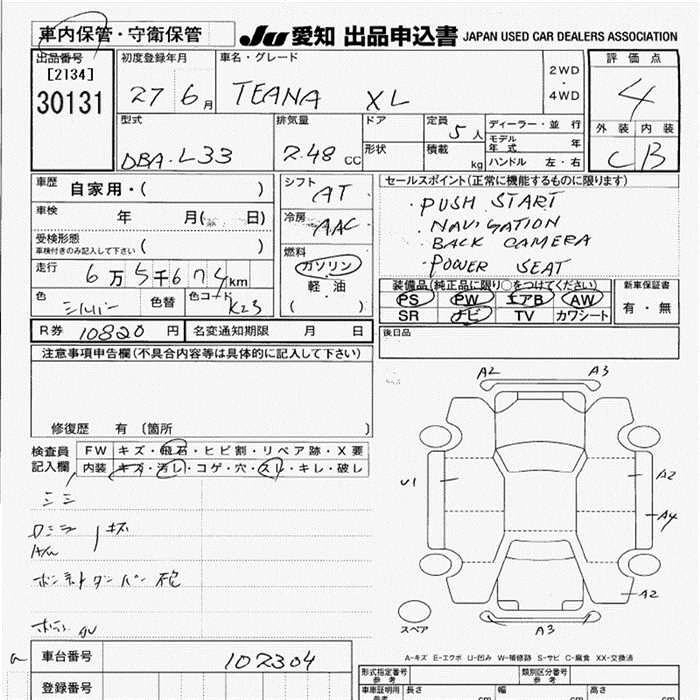 車内保管・守衛保管
JU 愛知 出品申込書 JAPAN USED CAR DEALERS ASSOCIATION
出品番号
[2134]
30131
初度登録年月
27 6月
車名・グレード
TEANA XL
2WD
・
4WD
評価点
4
外装 内装
C B
型式
DBA-L33
排気量
2.48 CC
ドア
形状
定員
5人
積載
kg
ディーラー・並行
モデル年式 年
ハンドル 左・右
車歴
自家用・( )
車検
年 月( 日)
受検形態
車検付きのみ記入して下さい
( )
走行
6万5千674km
色
シルバー
色替
色コード
K23
シフト
AT
冷房
AAC
燃料
ガソリン
軽・油
( )
セールスポイント(正常に機能するものに限ります)
・PUSH START
・NAVIGATION
・BACK CAMERA
・POWER SEAT
装備品(純正品に限り○をつけてください)
PS PW エアB AW
SR ナビ TV カワシート
新車保証書
有・無
R券 10820 円
名変通知期限 月 日
後日品
注意事項申告欄(不具合内容等は具体的に記入して下さい)
修復歴 有 〔箇所 〕
検査員
記入欄
FW キズ・飛石・ヒビ割・リペア跡・X要
内装 キズ・汚し・コゲ・穴・スレ・キレ・破し
A2 A3
U1
A2
A4
A2
A3
スペア
A-キズ E-エクボ U-凹み W-補修跡 S-サビ C-腐食 XX-交換済
車台番号
102304
登録番号
形式指定番号
参考
類別区分番号
参考
車庫証明用
参考
長さ cm
幅 cm
高さ cm